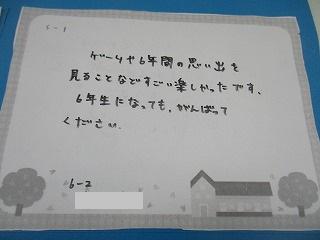 5-1
ゲームや6年間の思い出を
見ることなどすごい楽しかったです。
6年生になっても、がんばって
ください。
6-2